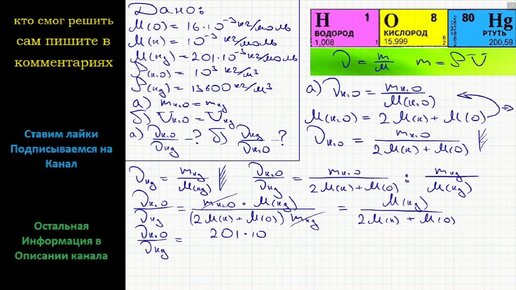 кто смог решить
сам пишите в
комментариях
Ставим лайки
Подписываемся на
Канал
Остальная
Информация в
Описании канала
Дано:
M(O) = 16·10⁻³ кг/моль
M(H) = 10⁻³ кг/моль
M(Hg) = 201·10⁻³ кг/моль
ρ(H₂O) = 10³ кг/м³
ρ(Hg) = 13600 кг/м³
а) m_H₂O = m_Hg
б) V_H₂O = V_Hg
а) ν_H₂O/ν_Hg – ? б) ν_Hg/ν_H₂O – ?
H 1 O 8 80 Hg
ВОДОРОД КИСЛОРОД РТУТЬ
1,008 15,999 200,59
ν = m/M m = ρV
а) ν_H₂O = m_H₂O/M(H₂O)
M(H₂O) = 2M(H) + M(O)
ν_H₂O = m_H₂O/(2M(H) + M(O))
ν_Hg = m_Hg/M(Hg) ν_H₂O/ν_Hg = m_H₂O/(2M(H) + M(O)) : m_Hg/M(Hg)
ν_H₂O/ν_Hg = m_H₂O · M(Hg)/((2M(H) + M(O)) m_Hg) = M(Hg)/(2M(H) + M(O))
ν_H₂O/ν_Hg = 201·10